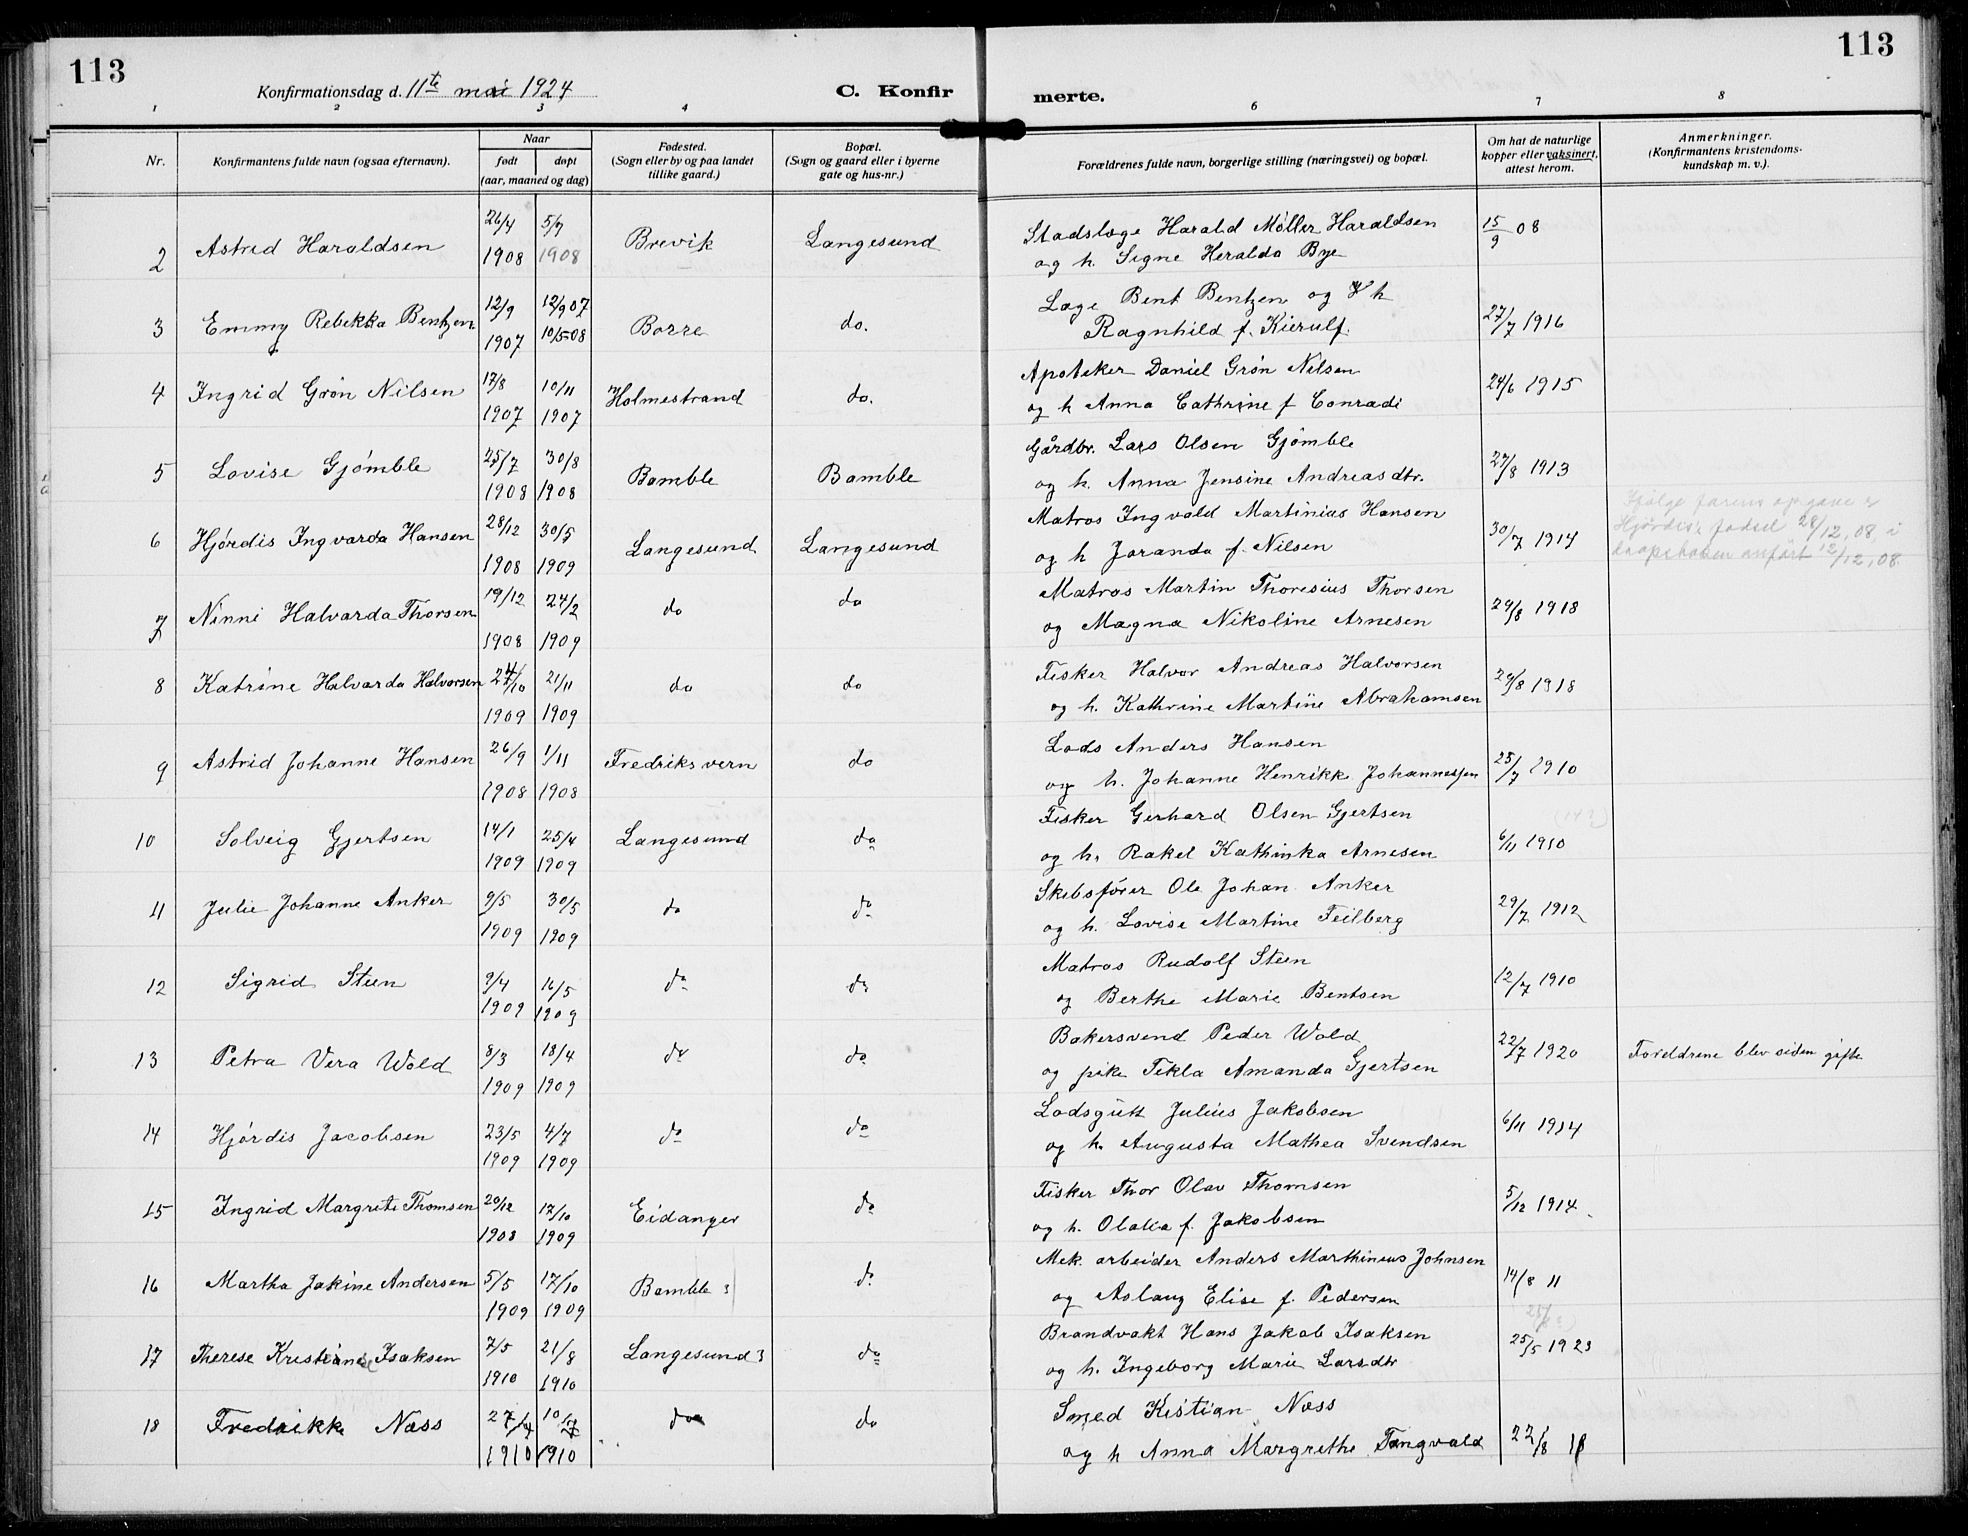 113
113
Konfirmationsdag d. 11te mai 1924
C. Konfir
merte.
1 2 3 4 6 7 8
Nr.
Konfirmantens fulde navn (ogsaa efternavn).
Naar
født
døpt
(aar, maaned og dag)
Fødested.
(Sogn eller by og paa landet
tillike gaard.)
Bopæl.
(Sogn og gaard eller i byerne
gate og hus-nr.)
Forældrenes fulde navn, borgerlige stilling (næringsvei) og bopæl.
Om hat de naturlige
kopper eller vaksinert,
attest herom.
Anmerkninger.
(Konfirmantens kristendoms-
kundskap m. v.).
2 Astrid Haraldsen 26/4 1908 5/7 1908 Brevik Langesund
Stadslæge Harald Møller Haraldsen
og h. Signe Heralda Bye
15/9 08
3 Emmy Rebekka Bentzen 12/9 1907 12/9 07 10/5 08 Borre do.
Læge Bent Bentzen og h
Ragnhild f. Kierulf.
27/7 1916
4 Ingrid Grøn Nilsen 17/8 1907 10/11 1907 Holmestrand do.
Apoteker Daniel Grøn Nilsen
og h Anna Cathrine f Conradi
24/6 1915
5 Lovise Gjømble 25/7 1908 30/8 1908 Bamble Bamble
Gårdbr. Lars Olsen Gjømble
og h. Anna Jensine Andreasdtr.
27/8 1913
6 Hjørdis Ingvarda Hansen 28/12 1908 30/5 1909 Langesund Langesund
Matros Ingvald Martinius Hansen
og h Joranda f. Nilsen
30/7 1914
Ifølge farens opgave er
Hjørdis's fødsel 28/12, 08, i
daapsboken anført 12/12, 08.
7 Ninni Halvarda Thorsen 19/12 1908 24/2 1909 do do
Matros Martin Thoresius Thorsen
og Magna Nikoline Arnesen
29/8 1918
8 Katrine Halvarda Halvorsen /10 1909 21/11 1909 do do
Fisker Halvor Andreas Halvorsen
og h. Kathrine Martine Abrahamsen
29/8 1918
9 Astrid Johanne Hansen 26/9 1908 1/11 1908 Fredriksvern do
Lods Anders Hansen
og h. Johanne Henrikke Johannessen
25/7 1910
10 Solveig Gjertsen 14/1 1909 25/4 1909 Langesund do
Fisker Gerhard Olsen Gjertsen
og h. Rakel Kathinka Arnesen
6/11 1910
11 Julie Johanne Anker 9/5 1909 30/5 1909 do do
Skibsfører Ole Johan Anker
og h. Lovise Martine Feilberg
29/7 1912
12 Sigrid Steen 9/4 1909 16/5 1909 do do
Matros Rudolf Steen
og Berthe Marie Bentsen
12/7 1910
13 Petra Vera Wold 8/3 1909 18/4 1909 do do
Bakersvend Peder Wold
og pike Tekla Amanda Gjertsen
22/7 1920
Foreldrene blev siden gifte
14 Hjørdis Jacobsen 23/5 1909 4/7 1909 do do
Lodsgutt Julius Jakobsen
og h. Augusta Mathea Svendsen
6/11 1914
15 Ingrid Margrete Thomsen 20/12 1908 17/10 1909 Eidanger do
Fisker Thor Olav Thomsen
og h. Olalia f. Jakobsen
5/12 1914
16 Martha Jakine Andersen 5/5 1909 17/10 1909 Bamble do
Mek. arbeider Anders Marthinius Johnsen
og Aslaug Elise f. Pedersen
14/8 11
17 Therese Kristiane Isaksen 7/5 1910 21/8 1910 Langesund do
Brandvakt Hans Jakob Isaksen
og h. Ingeborg Marie Larsdtr
25/5 1923
18 Fredrikke Næss 27/4 1910 10/7 1910 do do
Smed Kistian Næss
og h Anna Margrethe Tangvald
22/8 11